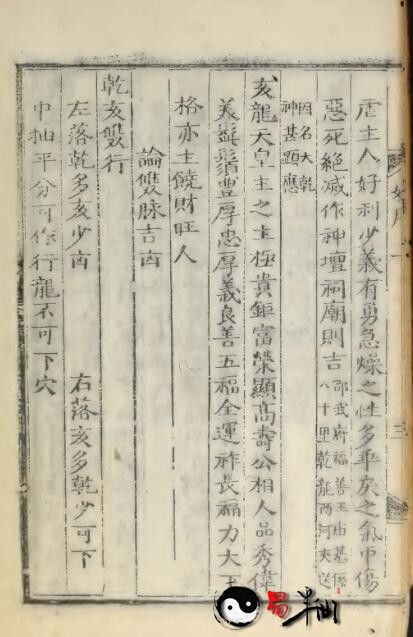 虐主人好利少義有勇急燥之性多乖戾之氣中傷
惡死絕滅作神壇祠廟則吉
邵武府福善王 基係
八十里乾龍兩河夾送
因名大乾
神甚顯應
亥龍天皇主之主極貴鉅富榮顯高壽公相人品秀偉
美鬚豐厚忠厚義良善五福全運祚長福力大
格亦主饒財旺人
論雙脉吉凶
乾亥雙行
左落乾多亥少凶 右落亥多乾少可下
中抽平分可作行龍不可下穴
易